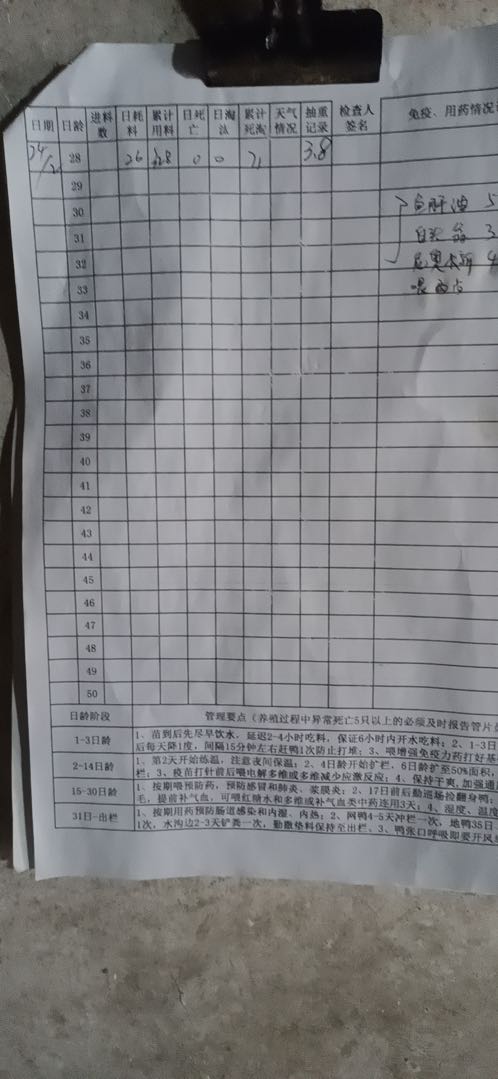 日期 日龄 进料数 日耗料 累计用料 日死亡 日淘汰 累计死淘 天气情况 抽重记录 检查人签名 免疫、用药情况
28 26 0 0 71 3.8
29
30 5
31 3
32 4
33
34
35
36
37
38
39
40
41
42
43
44
45
46
47
48
49
50
日龄阶段 管理要点（养殖过程中异常死亡5只以上的必须及时报告管片
1-3日龄 1、苗到后先尽早饮水，延迟2-4小时吃料，保证6小时内开水吃料；2、1-3日
后每天降1度，间隔15分钟左右赶鸭1次防止打堆；3、喂增强免疫力药打好基
2-14日龄 1、第2天开始炼温，注意夜间保温；2、4日龄开始扩栏，6日龄扩至50%面积，
栏；3、疫苗打针前后喂电解多维或多维减少应激反应；4、保持干爽，加强通
15-30日龄 1、按期喂预防药，预防感冒和肺炎、浆膜炎；2、17日前后勤巡场捡翻身鸭；
毛，提前补气血，可喂红糖水和多维或补气血类中药连用3天；4、湿度、温度
31日-出栏 1、按期用药预防肠道感染和内湿、内热；2、网鸭4-5天冲栏一次，地鸭35日
1次，水沟边2-3天铲粪一次，勤撒垫料保持至出栏、3、鸭张口呼吸即要开风